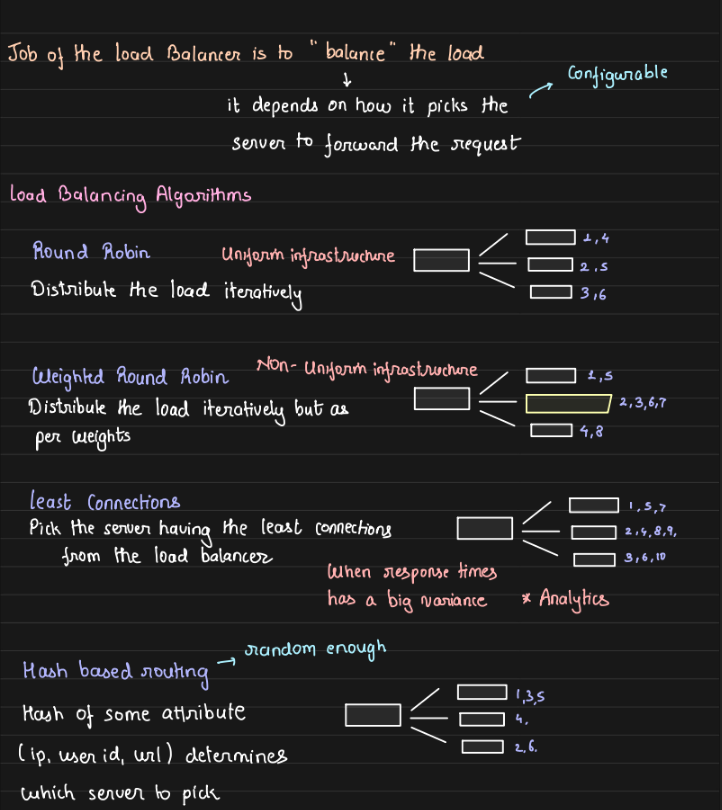 Job of the load Balancer is to "balance" the load
Configurable
it depends on how it picks the
server to forward the request
Load Balancing Algorithms
Round Robin
Uniform infrastructure
Distribute the load iteratively
1,4
2,5
3,6
Weighted Round Robin
Non-Uniform infrastructure
Distribute the load iteratively but as
per weights
1,5
2,3,6,7
4,8
least Connections
Pick the server having the least connections
from the load balancer
1,5,7
2,4,8,9,
3,6,10
When response times
has a big variance * Analytics
Hash based routing
random enough
Hash of some attribute
(ip, user id, url) determines
which server to pick
1,3,5
4.
2,6.